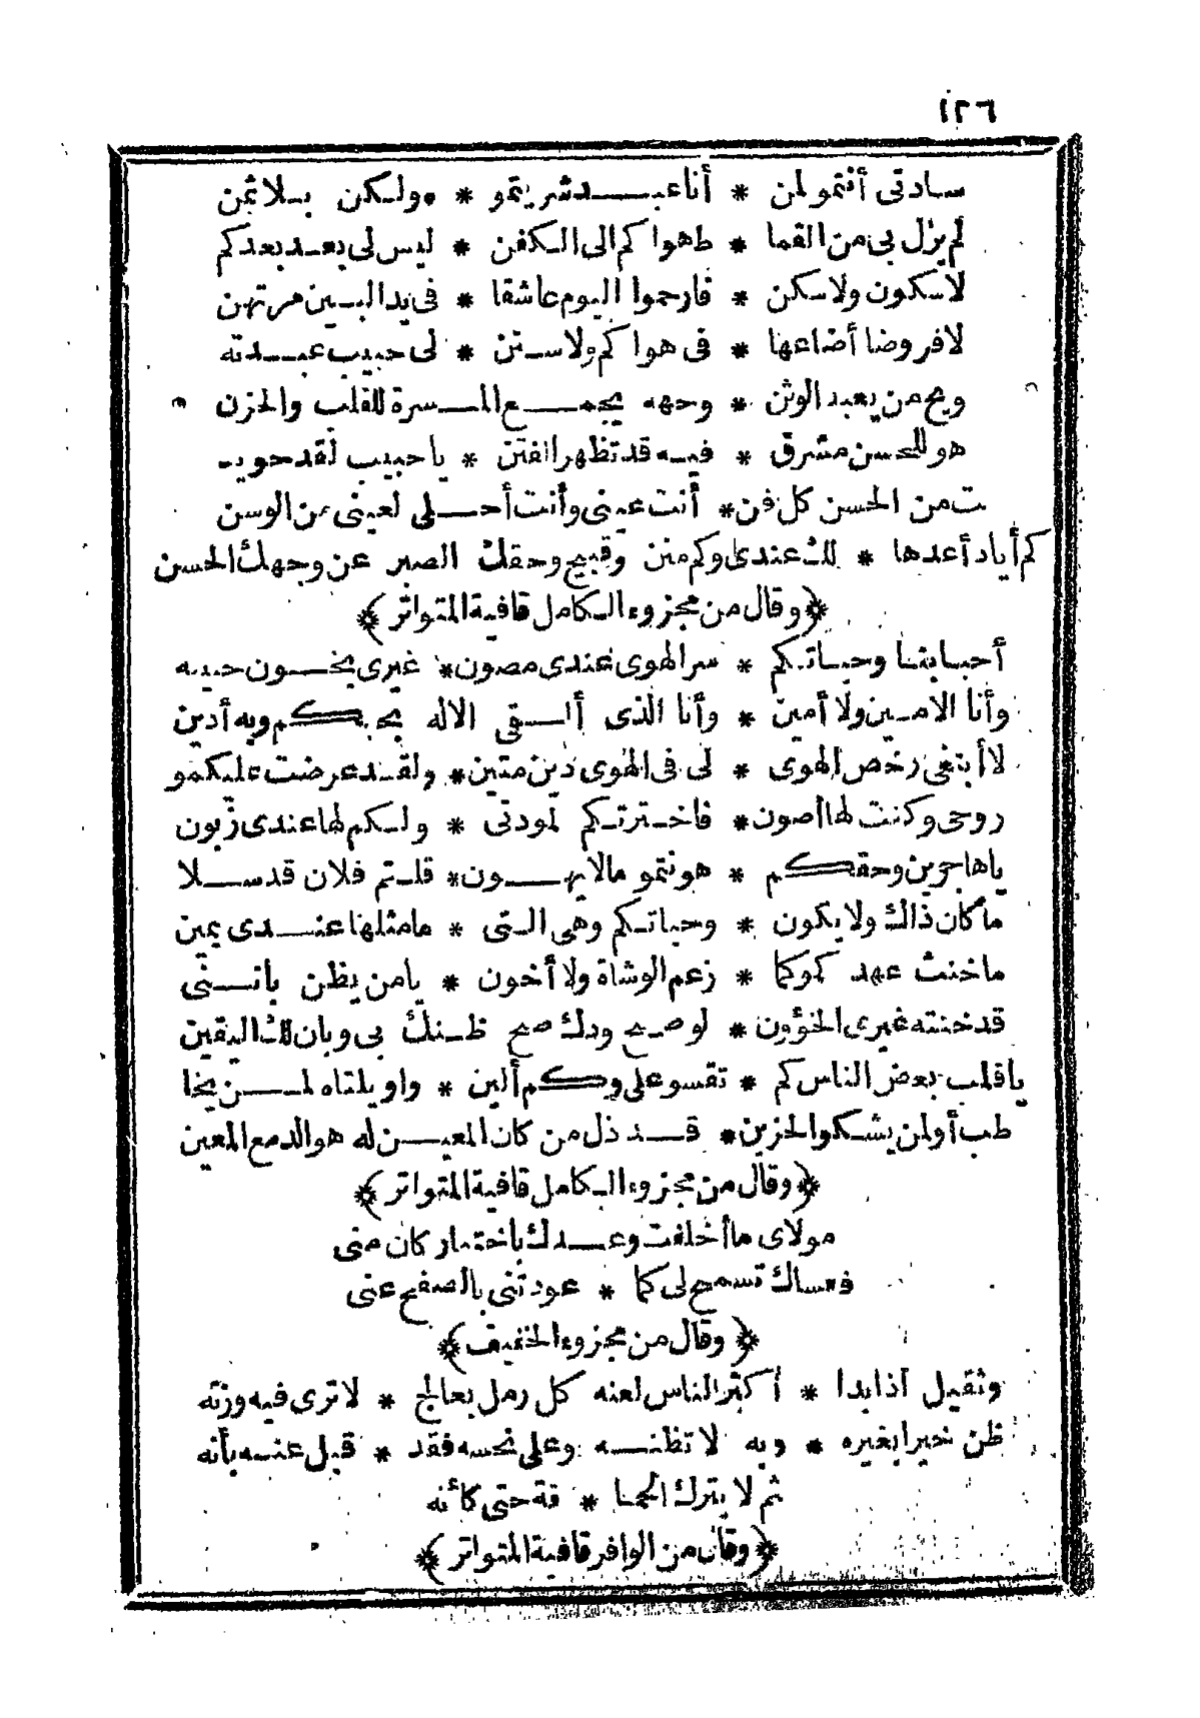 ١٢٦
سادتى أنتمو لمن * أنا عبد شريتمو * ولكن بلا ثمن
لم يزل بى من القما * ط هواكم الى الكفن * ليس لى بعد بعدكم
لا سكون ولا سكن * فارحموا اليوم عاشقا * فى يد البين مرتهن
لا فروضا أضاعها * فى هواكم ولا سنن * لى حبيب عبدته
ويح من يعبد الوثن * وجهه يجمع المسرة للقلب والحزن
هو للحسن مشرق * فيه قد تظهر الفتن * يا حبيب لقد حويـ
ـت من الحسن كل فن * أنت عينى وأنت أحلى لعينى من الوسن
كم أياد أعدها * لك عندى وكم منن وقبيح وحقك الصبر عن وجهك الحسن
﴿وقال من مجزوء الكامل قافية المتواتر﴾
أحبابنا وحياتكم * سر الهوى عندى مصون * غيرى يخون حبيبه
وأنا الامين ولا أمين * وأنا الذى ألقى الاله بحبكم وبه أدين
لا أبتغى رخص الهوى * لى فى الهوى دين متين * ولقد عرضت عليكمو
روحى وكنت لها أصون * فاخترتكم لمودتى * ولكم لها عندى زبون
يا هاجرين وحقكم * هونتمو ما لا يهون * قلتم فلان قد سلا
ما كان ذاك ولا يكون * وحياتكم وهى التى * ما مثلها عندى يمين
ما خنت عهد كمو كما * زعم الوشاة ولا أخون * يا من يظن بأننى
قد خنته غيرى الخؤون * لو صح ودك صح ظنك بى وبان لك اليقين
يا قلب بعض الناس كم * تقسو على وكم ألين * وا ويلتاه لمن يخا
طب أو لمن يشكو الحزين * قد ذل من كان المعين له هو الدمع المعين
﴿وقال من مجزوء الكامل قافية المتواتر﴾
مولاى ما أخلفت وعدك باختيار كان منى
فعساك تسمح لى كما * عودتنى بالصفح عنى
﴿وقال من مجزوء الخفيف﴾
وثقيل اذا بدا * أكثر الناس لعنه كل رمل بعالج * لا ترى فيه وزنه
ظن خيرا بغيره * وبه لا تظنه وعلى نحسه فقد * قيل عنه بأنه
ثم لا يترك الحما * قة حتى كأنه
﴿وقال من الوافر قافية المتواتر﴾